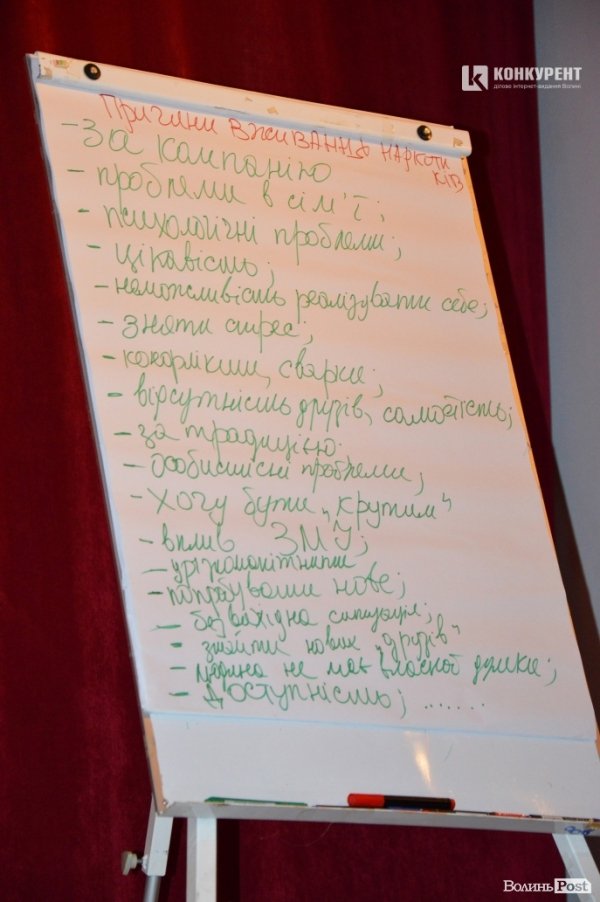 КОНКУРЕНТ
ділове інтернет-видання Волині
Причини вживання наркоти
ків
- за компанію
- проблеми в сім'ї;
- психологічні проблеми;
- цікавість;
- неможливість реалізувати себе;
- зняти стрес;
- конфлікти, сварки;
- відсутність друзів, самотність;
- за традицією.
- особистісні проблеми;
- хочу бути „крутим"
- вплив ЗМУ;
- урізноманітнити
- попробувати нове;
- безвихідна ситуація;
- знайти нових „друзів"
- людина не має власної думки;
- доступність; ......
ВолиньPost